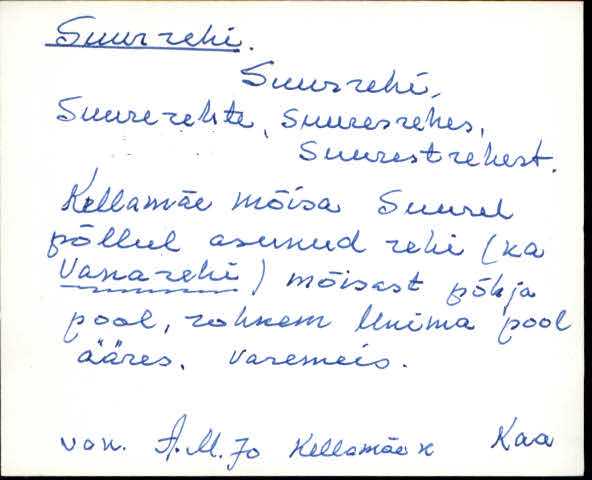 Suur rehi.
Suurrehi,
Suurerehte, Suuresrehes,
Suurestrehest.
Kellamäe mõisa Suurel
põllul asunud rehi (ka
Vanarehi) mõisast põhja
pool, rohkem Unima pool
ääres. Varemeis.
von. A.M. Jo Kellamäe k Kaa